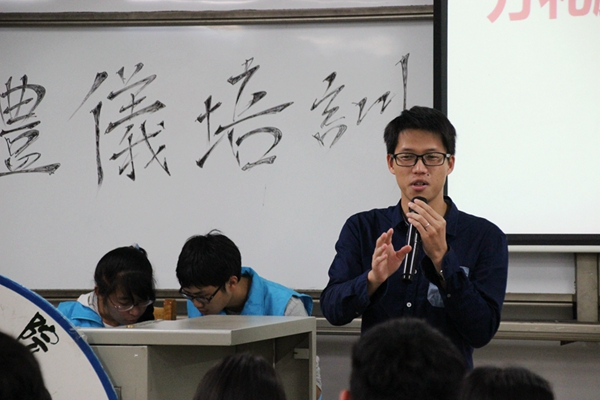 禮儀培訓
院